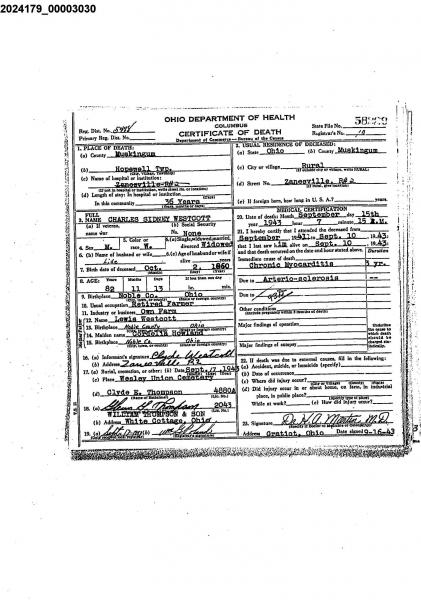 2024179_00003030
OHIO DEPARTMENT OF HEALTH
COLUMBUS
CERTIFICATE OF DEATH
Department of Commerce—Bureau of the Census
Reg. Dist. No.
State File No.
Primary Reg. Dist. No.
Registrar's No. 10
1. PLACE OF DEATH:
(a) County Muskingum
(b) Hopewell Twp.
(City, Village, Township)
(c) Name of hospital or institution:
Zanesville R#2
(If not in hospital or institution, write street No. or location)
(d) Length of stay: In hospital or institution
In this community 36 Years
2. USUAL RESIDENCE OF DECEASED:
(a) State Ohio (b) County Muskingum
(c) City or village Rural
(If outside city or village, write RURAL)
(d) Street No. Zanesville, R#2
(If rural, give location)
(e) If foreign born, how long in U. S. A.?
FULL
3. NAME CHARLES SIDNEY WESTCOTT
(a) If veteran, name war
(b) Social Security No. None
4. Sex M. 5. Color or race W. 6. (a) Single, widowed, married, divorced Widowed
6. (b) Name of husband or wife 6. (c) Age of husband or wife if alive
7. Birth date of deceased Oct. 2 1860
8. AGE: Years Months Days If less than one day
82 11 13 hr. min.
9. Birthplace Noble Co. Ohio
10. Usual occupation Retired Farmer
11. Industry or business Own Farm
12. Name Lewis Westcott
13. Birthplace Noble County Ohio
14. Maiden name Cordelia Howland
15. Birthplace Noble Co. Ohio
16. (a) Informant's signature Clyde Westcott
(b) Address Zanesville R2
17. (a) Burial, cremation, or other: (b) Date Sept. 17, 1943
(c) Place Wesley Union Cemetery
(d) Clyde E. Thompson 4880A
18. (a) 2043
WILLIAM THOMPSON & SON
(b) Address White Cottage, Ohio
19. (a) (b)
MEDICAL CERTIFICATION
20. Date of death: Month September day 15th
year 1943 hour 7 minute 15 A.M.
21. I hereby certify that I attended the deceased from
September 1941 to Sept. 10, 1943;
that I last saw him alive on Sept. 10, 1943;
and that death occurred on the date and hour stated above.
Immediate cause of death Duration
Chronic Myocarditis 3 yr.
Due to Arterio-sclerosis
Due to
Other conditions
(Include pregnancy within 3 months of death)
Major findings of operation:
Major findings of autopsy:
Underline the cause to which death should be charged statistically.
22. If death was due to external causes, fill in the following:
(a) Accident, suicide, or homicide (specify)
(b) Date of occurrence
(c) Where did injury occur?
(d) Did injury occur in or about home, on farm, in industrial
place, in public place?
While at work? (e) How did injury occur?
23. Signature Dr. H. A. Martin, M.D.
Address Gratiot, Ohio Date signed 9-16-43